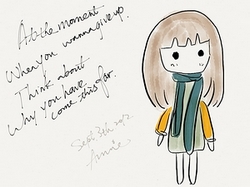 At the moment
When you wanna give up.
Think about
Why you have
come this far.
Annie